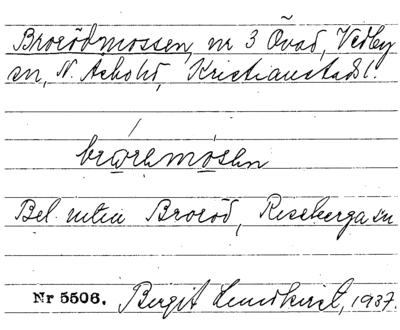 Brorödmossen, nr 3 Övad, Vedby
sn, N. Åsbohd, Kristianstads l.
Bel. intill Broröd, Riseberga sn
Nr 5506. Birgit Lundkvist, 1937.